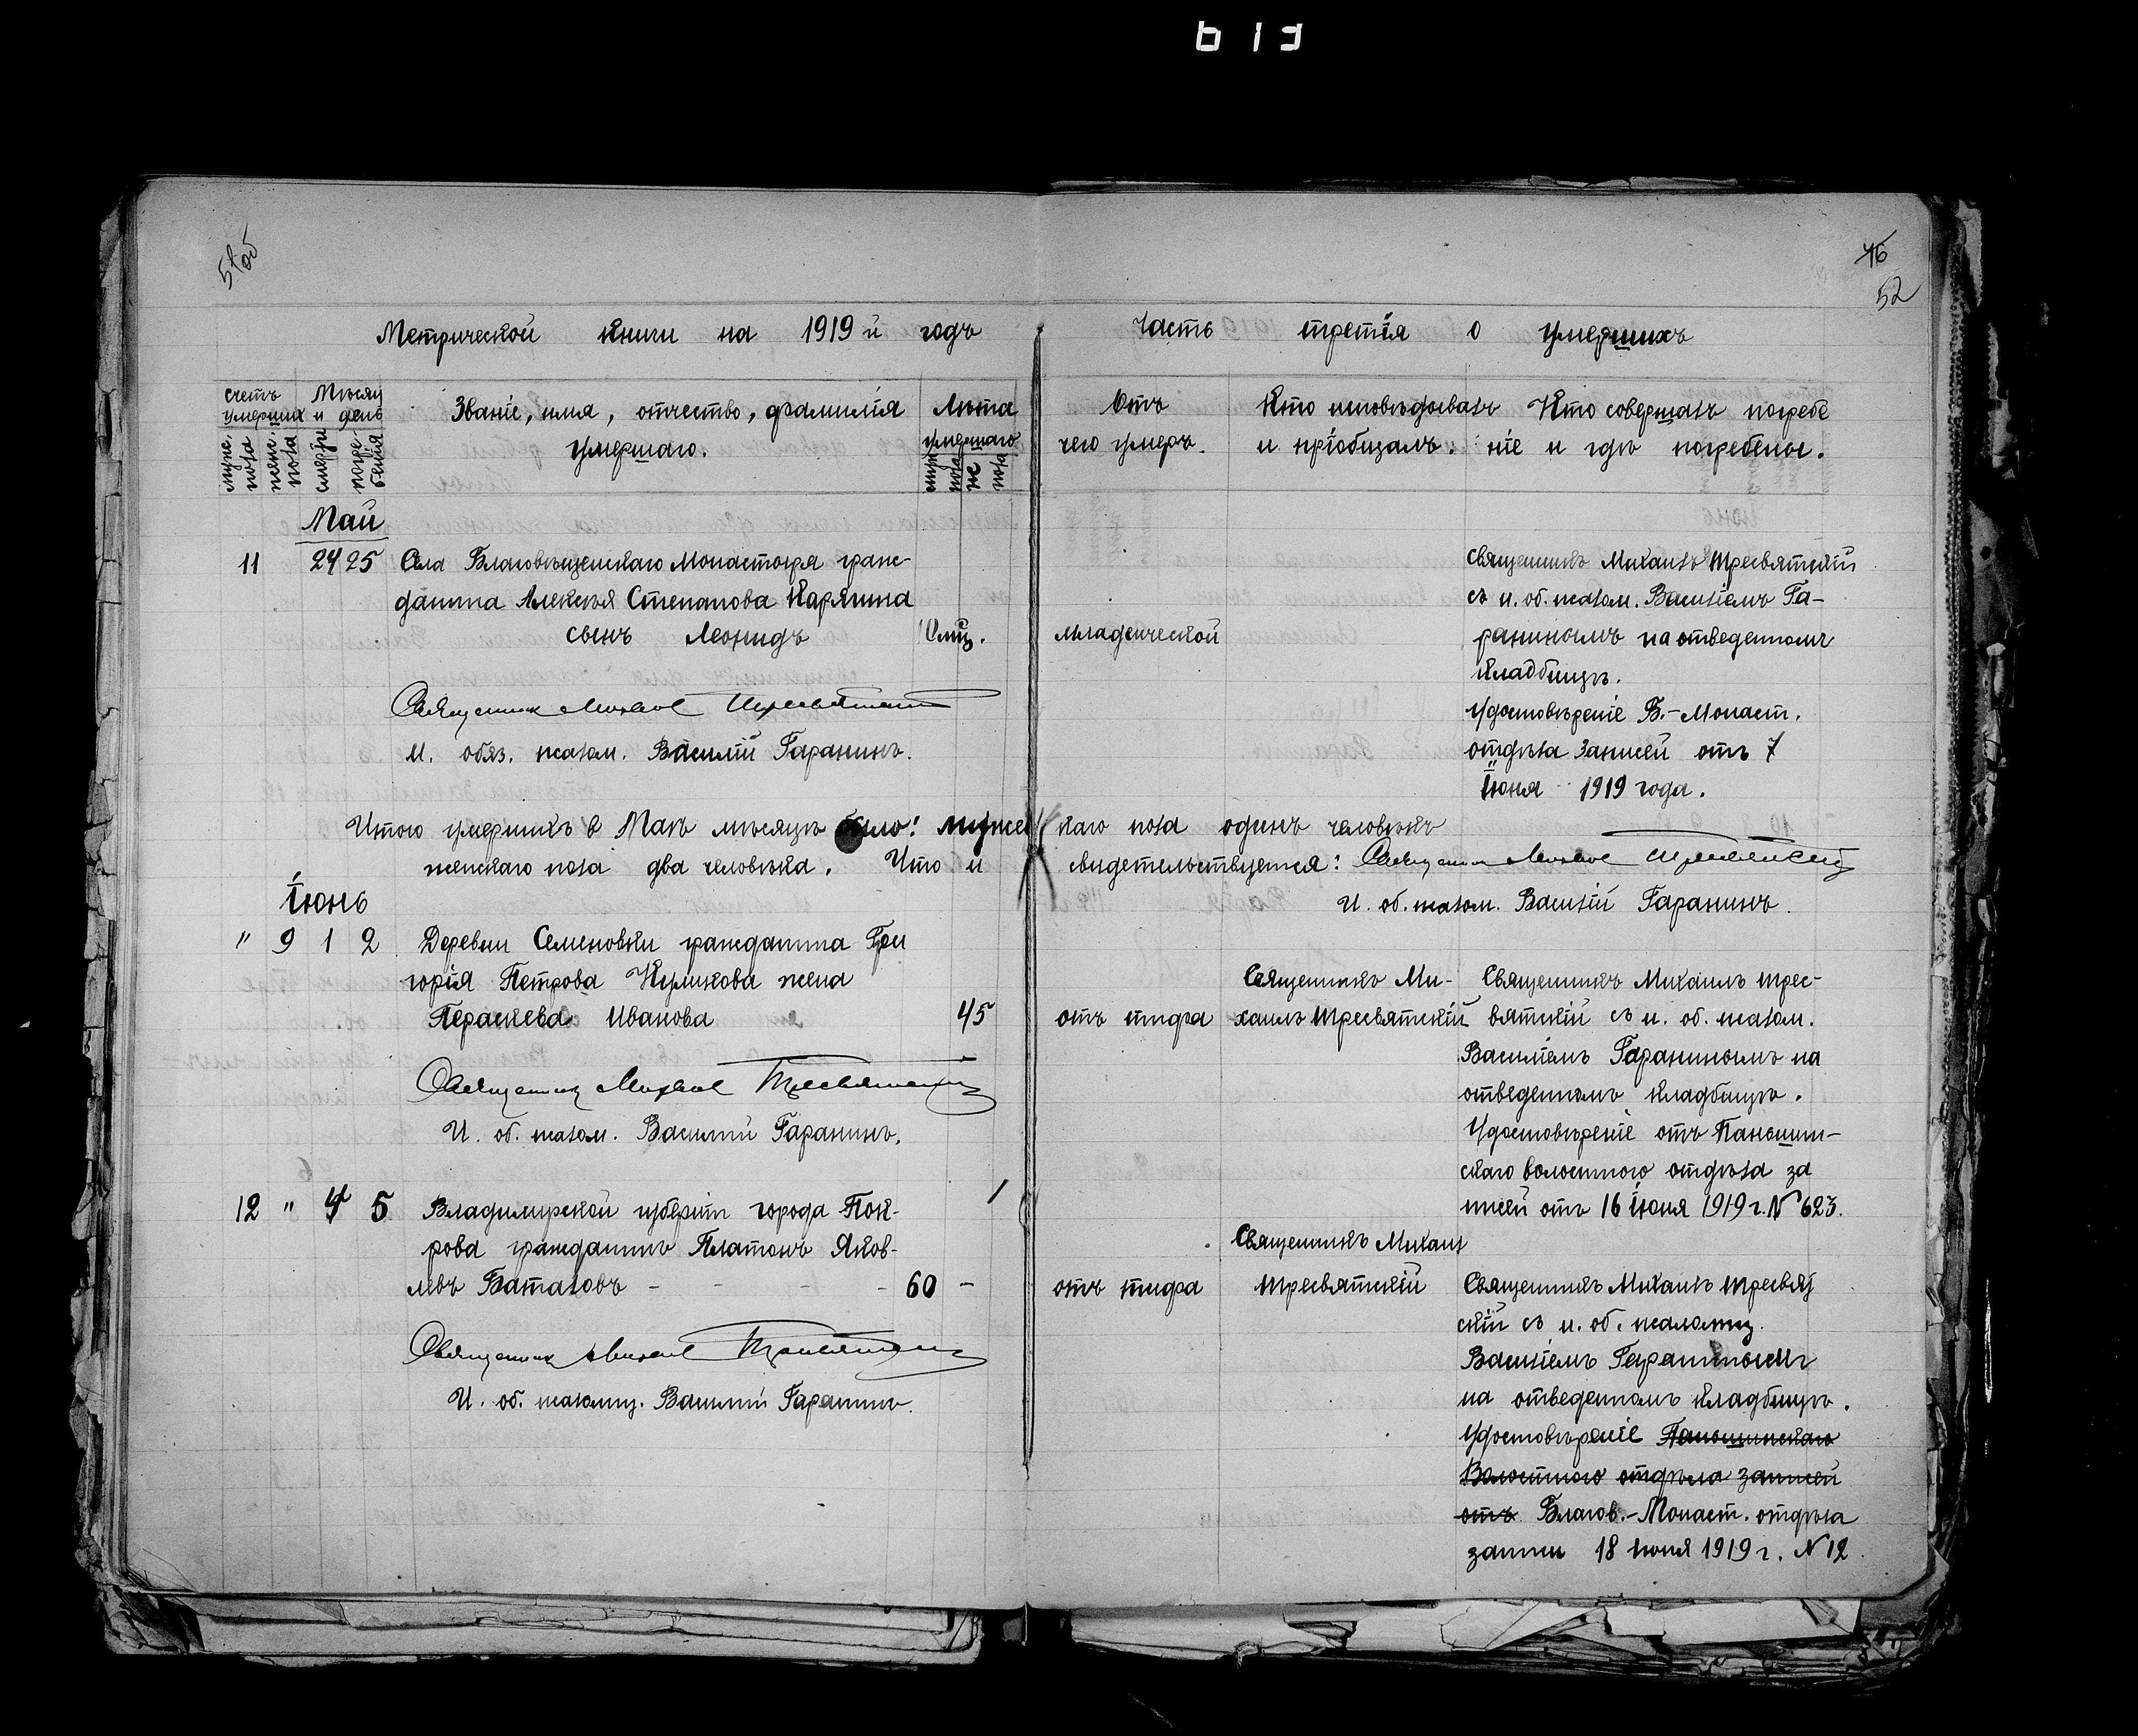 51об
46
52
Метрической книги на 1919й годъ
Часть третія о умершихъ
Счетъ умершихъ
Мѣсяц и день
Званіе, имя, отчество, фамилія
умершаго.
Лѣта
умершаго
мужс. пола
женс. пола
смерти
погре-бенія
Отъ
чего умеръ.
Кто исповѣдовалъ
и пріобщалъ.
Кто совершалъ погребе
ніе и гдѣ погребены.
Май
11 24 25 Села Благовѣщенскаго Монастыря граж-
данина Алексѣя Степанова Карягина
сынъ Леонидъ
младенческой
Священникъ Михаилъ Тресвятскій
съ и. об. псалом. Василіемъ Га-
ранинымъ на отведенномъ
кладбищѣ.
Удостовѣреніе Б.-Монаст.
отдѣла записей отъ 7
Іюня 1919 года.
Священник Михаил Тресвятский
И. обяз. псалом. Василій Гаранинъ.
Итого умершихъ в Маѣ мѣсяцѣ было: мужес
каго пола одинъ человѣкъ
женскаго пола два человѣка. Что и
свидетельствуется: Священник Михаил Тресвятский
И. об. псалом. Василій Гаранинъ.
Іюнь
" 9 1 2 Деревни Семеновки гражданина Гри
горія Петрова Куликова жена
Параскева Иванова 45
отъ тифа
Священникъ Ми-
хаилъ Тресвятскій
Священникъ Михаилъ Трес-
вятскій съ и. об. псалом.
Василіемъ Гаранинымъ на
отведенномъ кладбищѣ.
Удостовѣреніе отъ Паньшин-
скаго волостного отдѣла за
писей отъ 16 Іюня 1919 г. № 623.
Священник Михаил Тресвятский
И. об. псалом. Василій Гаранинъ.
12 " 4 5 Владимирской губерніи города Пок-
рова гражданинъ Платонъ Яков-
левъ Баталовъ - - - - 60 -
отъ тифа
Священникъ Михаил
Тресвятскій
Священникъ Михаилъ Тресвят
скій съ и. об. псаломщ.
Василіемъ Гаранинымъ
на отведенномъ кладбищѣ.
Удостовѣреніе Паньшинскаго
Волостного отдѣла записей
отъ Благов.-Монаст. отдѣла
записи 18 июня 1919 г. № 12
Священник Михаил Тресвятский
И. об. псаломщ. Василій Гаранинъ.